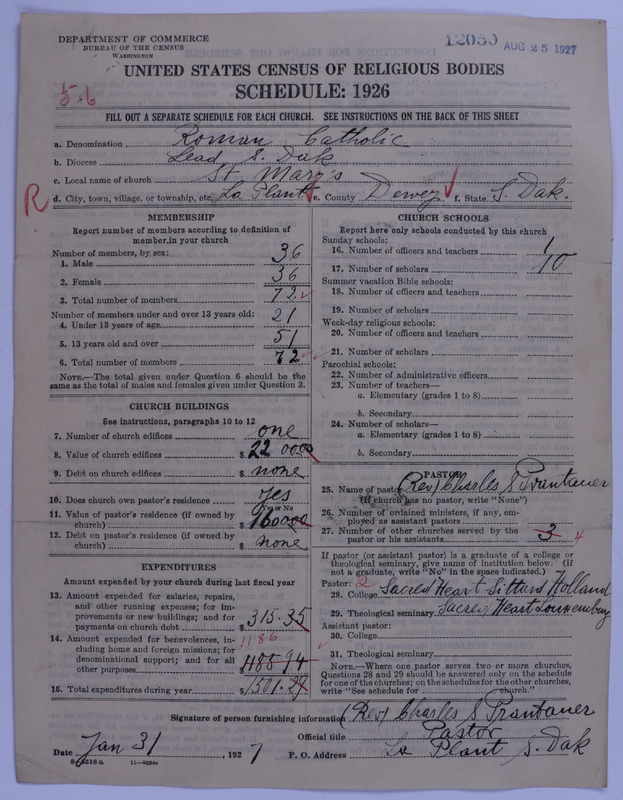 DEPARTMENT OF COMMERCE
BUREAU OF THE CENSUS
WASHINGTON
12050 AUG 25 1927
UNITED STATES CENSUS OF RELIGIOUS BODIES
SCHEDULE: 1926
56
FILL OUT A SEPARATE SCHEDULE FOR EACH CHURCH. SEE INSTRUCTIONS ON THE BACK OF THIS SHEET
a. Denomination Roman Catholic
b. Diocese Lead, S. Dak
c. Local name of church St Mary's
R d. City, town, village, or township, etc. La Plant e. County Dewey f. State S. Dak.
MEMBERSHIP
Report number of members according to definition of
member in your church
Number of members, by sex:
1. Male 36
2. Female 36
3. Total number of members 72
Number of members under and over 13 years old:
4. Under 13 years of age 21
5. 13 years old and over 51
6. Total number of members 72
NOTE.—The total given under Question 6 should be the
same as the total of males and females given under Question 3.
CHURCH BUILDINGS
See instructions, paragraphs 10 to 12
7. Number of church edifices one
8. Value of church edifices $ 22 0000
9. Debt on church edifices $ none
10. Does church own pastor's residence yes
Yes or No
11. Value of pastor's residence (if owned by
church) $
12. Debt on pastor's residence (if owned by
church) $ none
EXPENDITURES
Amount expended by your church during last fiscal year
13. Amount expended for salaries, repairs,
and other running expenses; for im-
provements or new buildings; and for
payments on church debt $ 315.35
14. Amount expended for benevolences, in-
cluding home and foreign missions; for
denominational support; and for all
other purposes $ 1186 94
1186
15. Total expenditures during year $ 1501.29
CHURCH SCHOOLS
Report here only schools conducted by this church
Sunday schools:
16. Number of officers and teachers 1
17. Number of scholars 10
Summer vacation Bible schools:
18. Number of officers and teachers
19. Number of scholars
Week-day religious schools:
20. Number of officers and teachers
21. Number of scholars
Parochial schools:
22. Number of administrative officers
23. Number of teachers—
a. Elementary (grades 1 to 8)
b. Secondary
24. Number of scholars—
a. Elementary (grades 1 to 8)
b. Secondary
PASTOR
25. Name of pastor (Rev) Charles S Prantauer
(If church has no pastor, write "None")
26. Number of ordained ministers, if any, em-
ployed as assistant pastors
27. Number of other churches served by the
pastor or his assistants 3 4
If pastor (or assistant pastor) is a graduate of a college or
theological seminary, give name of institution below. (If
not a graduate, write "No" in the space indicated.)
Pastor: 2
28. College Sacred Heart Sittard Holland
29. Theological seminary Sacred Heart Louxemburg
Assistant pastor:
30. College
31. Theological seminary
NOTE.—Where one pastor serves two or more churches,
Questions 28 and 29 should be answered only on the schedule
for one of the churches; on the schedules for the other churches,
write "See schedule for church."
Signature of person furnishing information (Rev) Charles S Prantauer
Official title Pastor
Date Jan 31 1927 P. O. Address La Plant S. Dak
11—9084